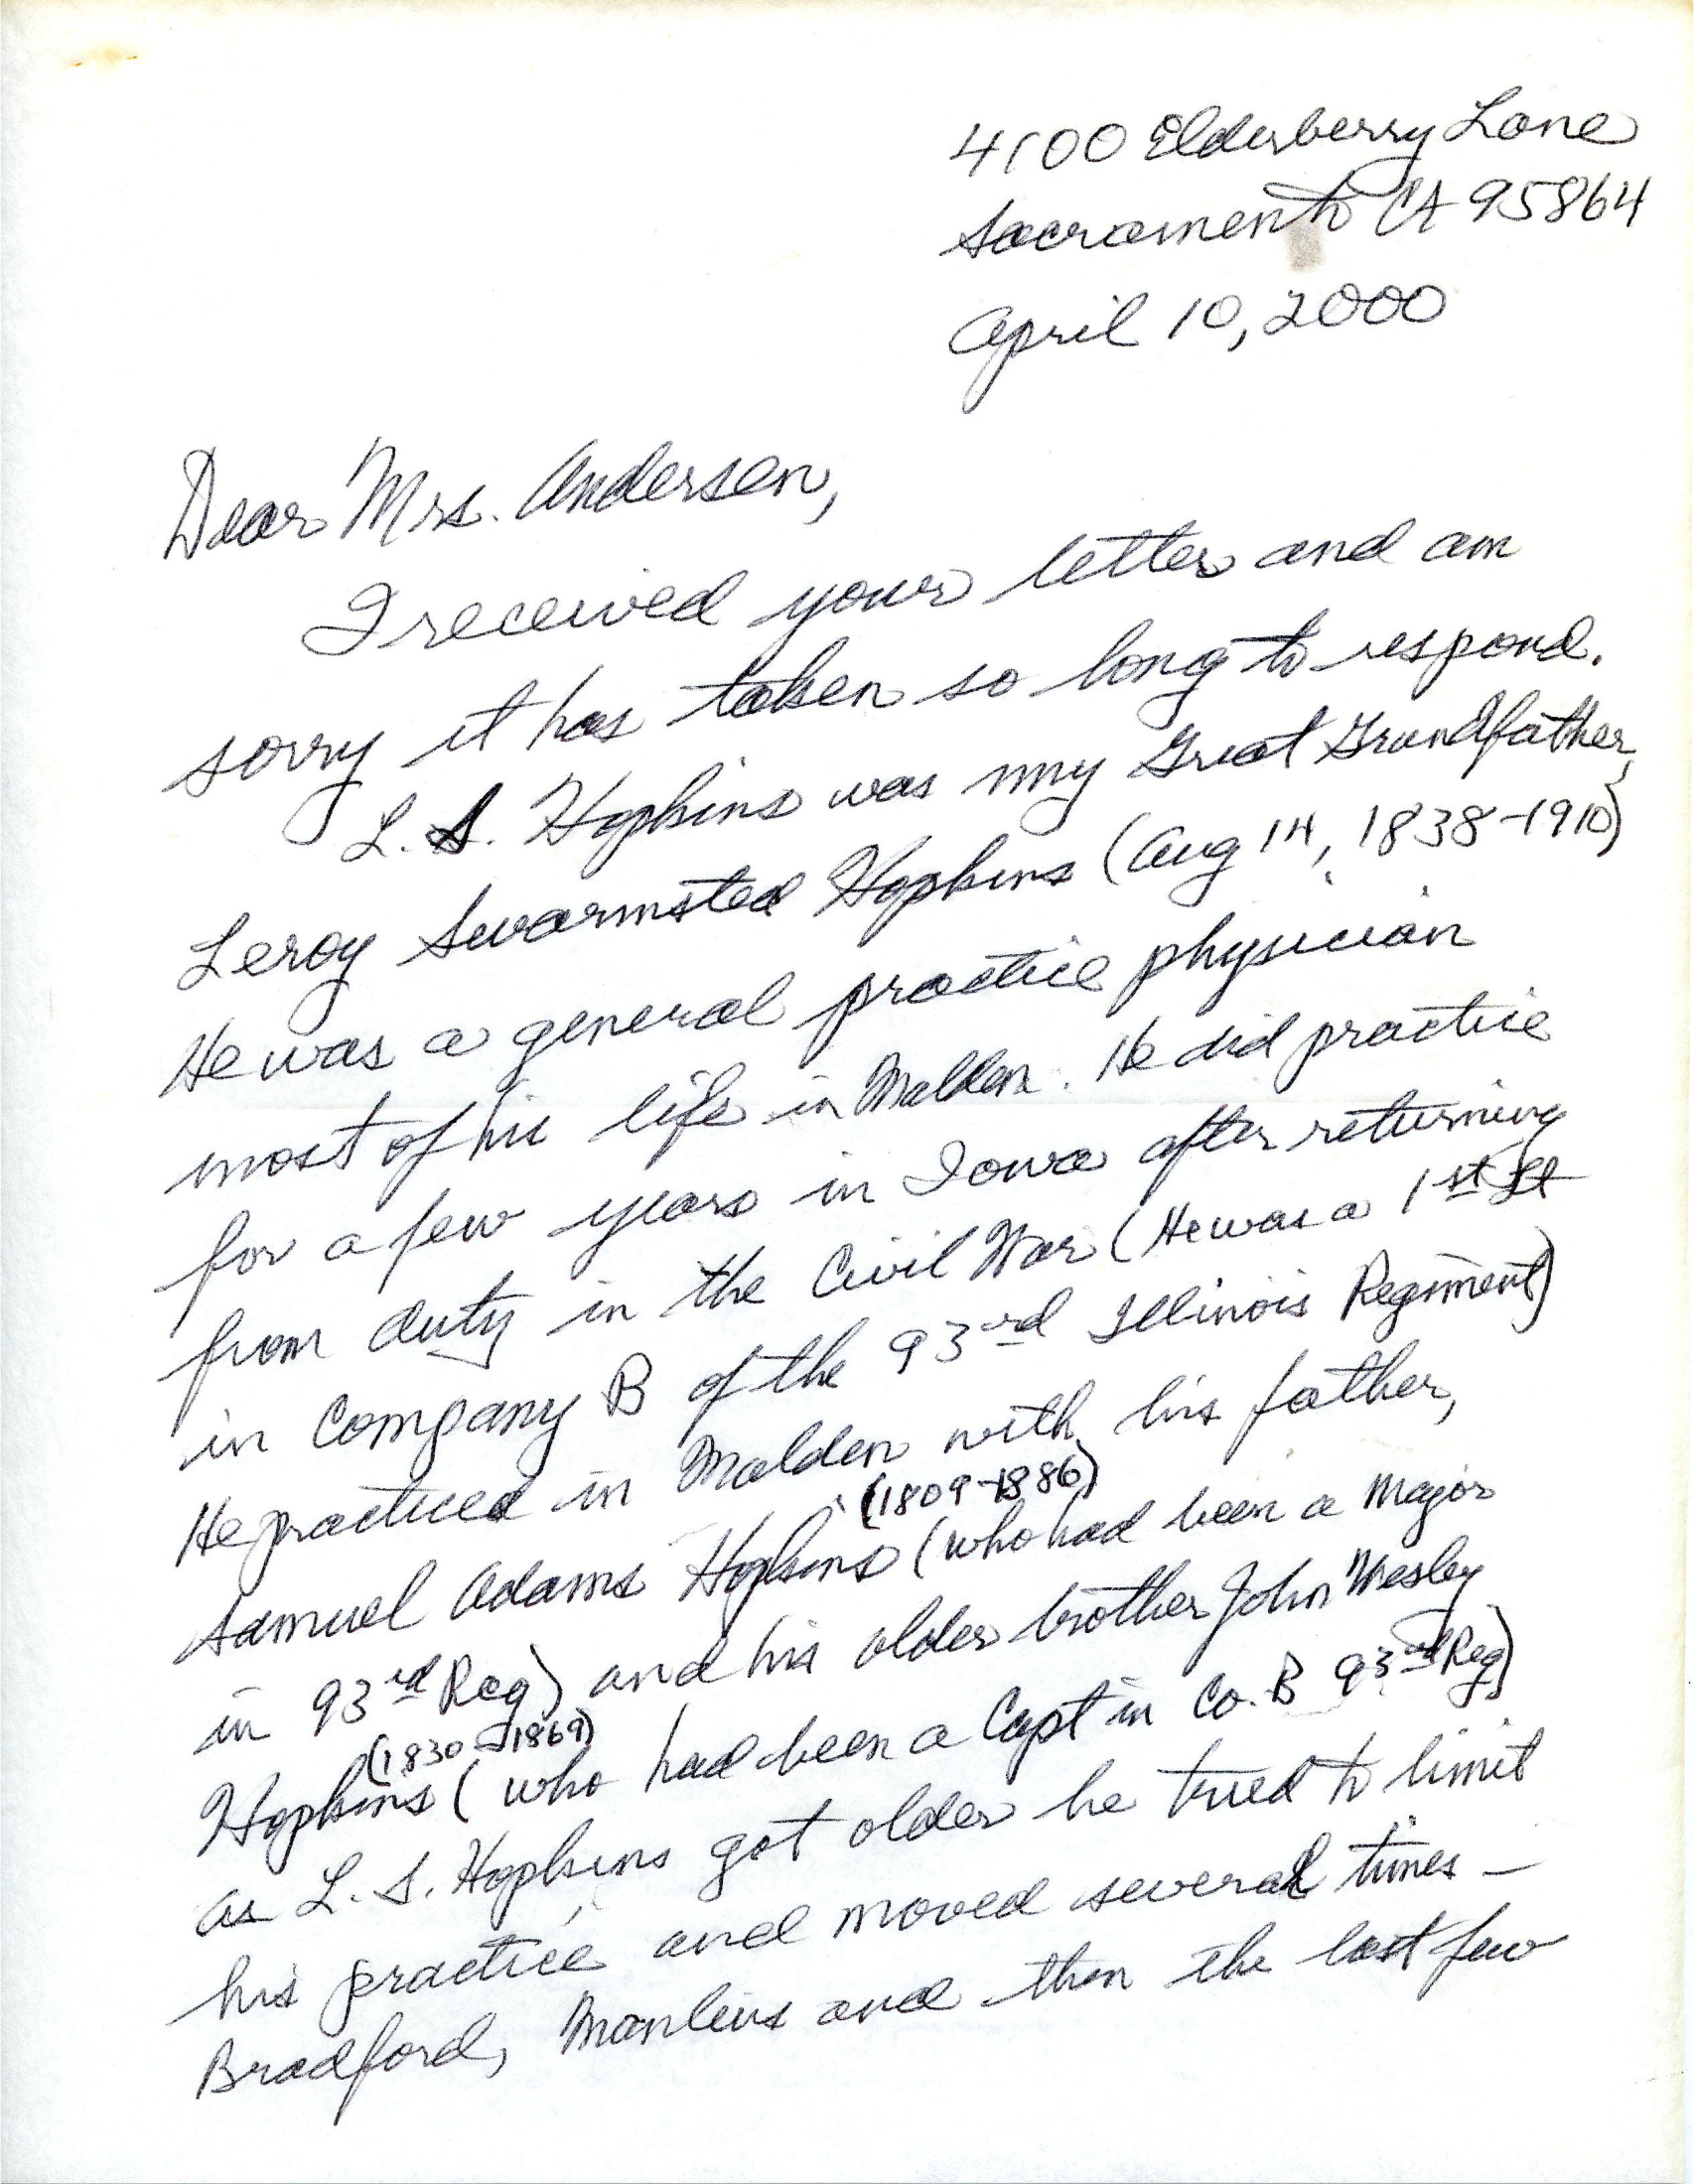 4100 Elderberry Lane
Sacramento CA 95864
April 10, 2000
Dear Mrs. Andersen,
I received your letter and am
sorry it has taken so long to respond.
L. S. Hopkins was my Great Grandfather,
Leroy Swarmsted Hopkins (Aug 14, 1838-1910)
He was a general practice physician
most of his life in Malden. He did practice
for a few years in Iowa after returning
from duty in the Civil War (He was a 1st Lt
in Company B of the 93rd Illinois Regiment)
He practiced in Malden with his father,
(1809-1886)
Samuel Adams Hopkins (who had been a Major
in 93rd Reg) and his older brother John Wesley
(1830-1869)
Hopkins (who had been a Capt in Co. B 93rd Reg)
As L. S. Hopkins got older he tried to limit
his practice and moved several times –
Bradford, Manlius and then the last few